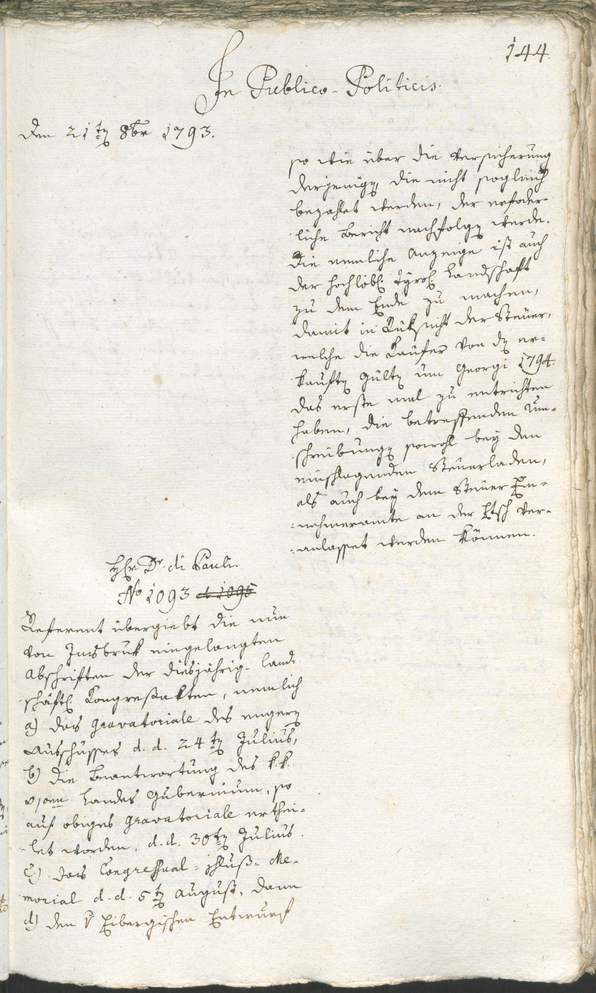 144.
In Publico-Politicis.
Den 21ten 8br 1793.
so wie über die Versicherung
derjenigen, die nicht sogleich
bezahlet werden, der erforder-
liche Bericht nachfolgen werde.
Die nemliche Anzeige ist auch
der hochlöbl. Tyrol. Landschaft
zu dem Ende zu machen,
damit in Rüksicht der Steuer,
welche die Käufer von den er-
kauften Gülten um Georgi 1794.
das erste mal zu entrichten
haben, die betreffenden Um-
schreibungen sowohl bey den
einschlagenden Steuerladen,
als auch bey dem Steuer Ein-
nehmeramte an der Etsch ver-
anlasset werden können.
Hr. Dr. di Pauli.
No 1093 et 1095
Referent übergiebt die nun
von Innsbruk eingelangten
Abschriften der diesjährig. land-
schäftl. Congreßakten, nemlich
a) das Gravatoriale des engern
Ausschusses d. d. 24ten Julius,
b) die Beantwortung des k.k.
Landes Guberniums, so
auf obiges Gravatoriale erthei-
let worden, d. d. 30ten Julius.
c) das Congressual-schluß-Me-
morial d. d. 5ten August, dann
d) den Eibergischen Entwurf